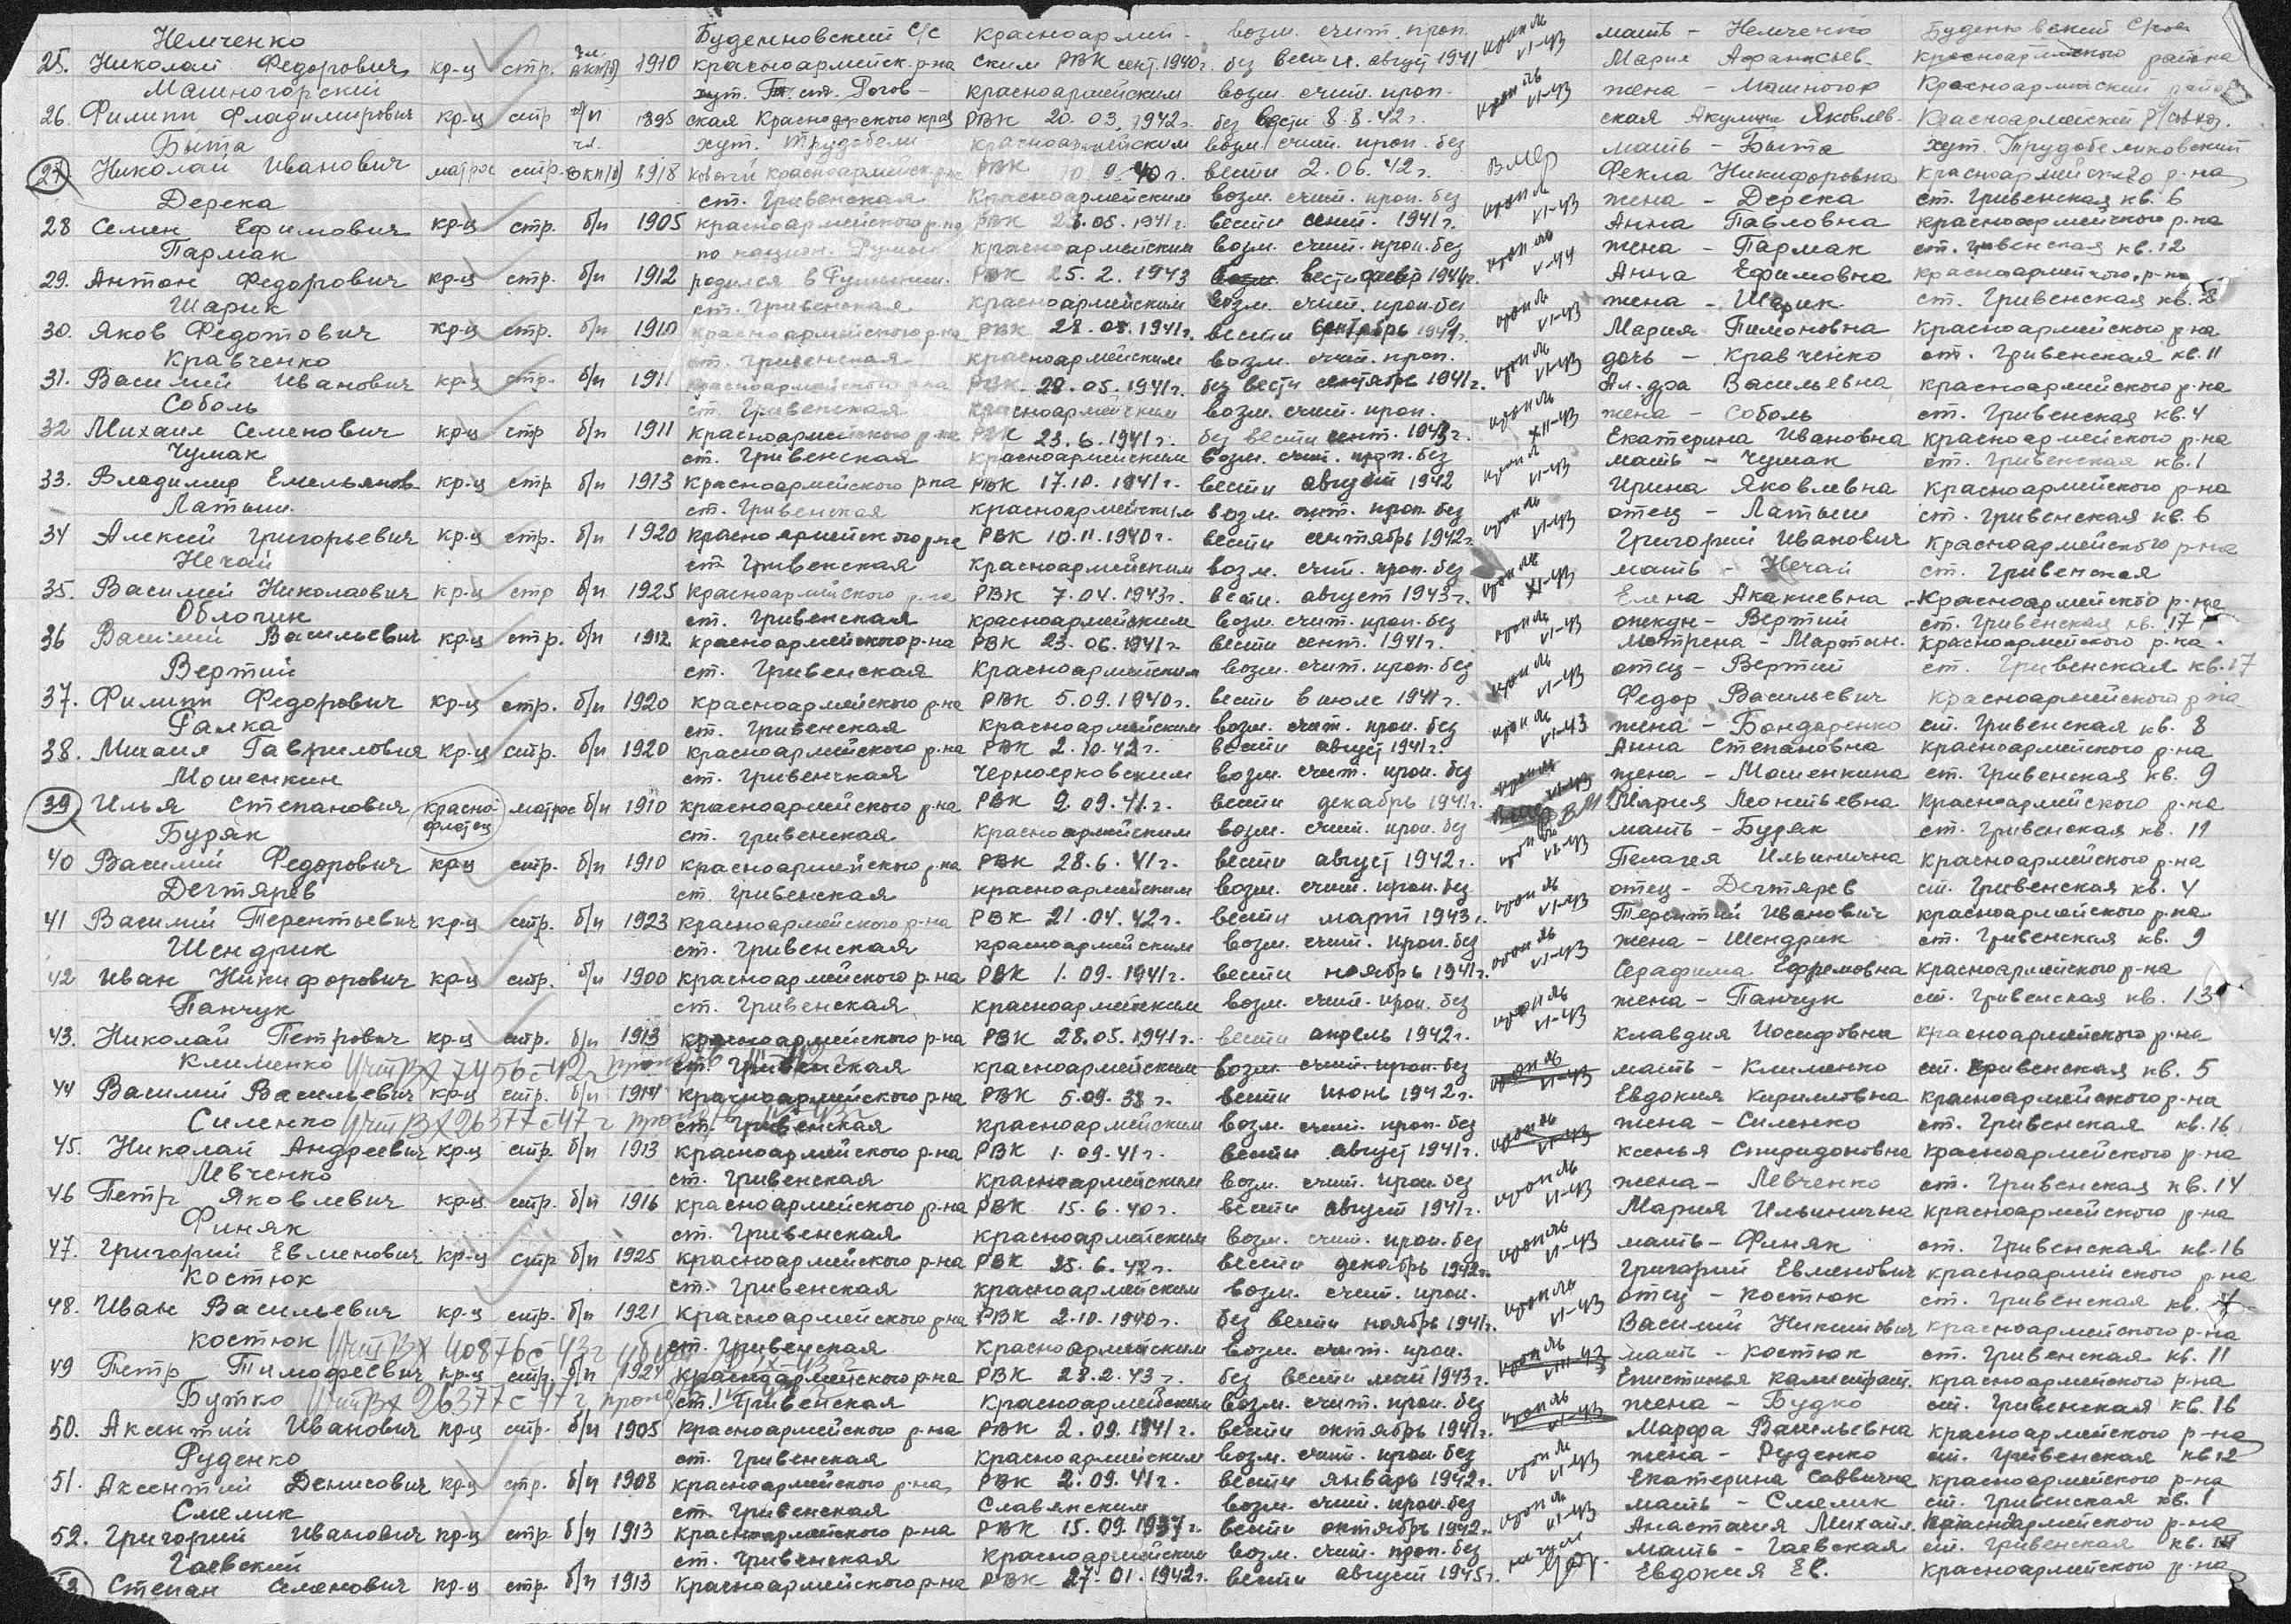 Немченко Буденновский с/с Красноармей- возм. счит. проп. мать - Немченко Буденновский с/сов.
25. Николай Федорович кр-ц стр. чл. ВКП(б) 1910 красноармейск. р-на ским РВК сент. 1940г. без вести. август 1941 VI-43 Мария Афанасьев. Красноармейского района
Машногорский хут. ст. Рогов- красноармейским возм. счит. проп. жена - Машногор Красноармейский район
26. Филипп Владимирович кр-ц стр б/п 1895 ская Краснодарского края РВК 20.03.1942г. без вести 8.8.42г. VI-43 ская Акулина Яковлев. Красноармейский р/совхоз.
Быта чл. хут. Трудобели красноармейским возм. счит. проп. без мать - Быта хут. Трудобеликовский
27 Николай Иванович матрос стр. ВКП(б) 1918 ковский Красноармейск. р-на РВК 10.9.40г. вести 2.06.42г. ВМФ Фекла Никифоровна Красноармейского р-на
Дерека ст. Гривенская Красноармейским возм. счит. проп. без жена - Дерека ст. Гривенская кв. 6
28 Семен Ефимович кр-ц стр. б/п 1905 красноармейского р-на РВК 28.05.1941г. вести сент. 1941г. VI-43 Анна Павловна красноармейского р-на
Пармак по национ. Румын красноармейским возм. счит. проп. без жена - Пармак ст. Гривенская кв. 12
29. Антон Федорович кр-ц стр. б/п 1912 родился в Румынии. РВК 25.2.1943 вести 1944г. V-44 Анна Ефимовна красноармейского р-на
Шарик ст. Гривенская красноармейским возм. счит. проп. без жена - Шарик ст. Гривенская кв. 8
30. Яков Федотович кр-ц стр. б/п 1910 красноармейского р-на РВК 28.08.1941г. вести сентябрь 1941г. VI-43 Мария Пимоновна Красноармейского р-на
Кравченко ст. Гривенская красноармейским возм. счит. проп. дочь - Кравченко ст. Гривенская кв. 11
31. Василий Иванович кр-ц стр. б/п 1911 красноармейского р-на РВК 28.05.1941г. без вести сентябрь 1941г. VI-43 Ал-дра Васильевна красноармейского р-на
Соболь ст. Гривенская красноармейским возм. счит. проп. жена - Соболь ст. Гривенская кв. 4
32 Михаил Семенович кр-ц стр б/п 1911 красноармейского р-на РВК 23.6.1941г. без вести сент. 1943г. XII-43 Екатерина Ивановна красноармейского р-на
Чумак ст. Гривенская красноармейским возм. счит. проп. без мать - Чумак ст. Гривенская кв. 1
33. Владимир Емельянов кр-ц стр б/п 1913 красноармейского р-на РВК 17.10.1941г. вести август 1942 VI-43 Ирина Яковлевна красноармейского р-на
Латыш ст. Гривенская красноармейским возм. счит. проп. без отец - Латыш ст. Гривенская кв. 6
34 Алексей Григорьевич кр-ц стр. б/п 1920 красноармейского р-на РВК 10.11.1940г. вести сентябрь 1942г. VI-43 Григорий Иванович красноармейского р-на
Нечай ст. Гривенская красноармейским возм. счит. проп. без мать - Нечай ст. Гривенская
35. Василий Николаевич кр-ц стр б/п 1925 красноармейского р-на РВК 7.04.1943г. вести. август 1943г. XI-43 Елена Акакиевна Красноармейского р-на
Облогин ст. Гривенская красноармейским возм. счит. проп. без опекун - Вертий ст. Гривенская кв. 17
36 Василий Васильевич кр-ц стр. б/п 1912 красноармейского р-на РВК 23.06.1941г. вести сент. 1941г. VI-43 Мотрена - Мартын. красноармейского р-на
Вертий ст. Гривенская Красноармейским возм. счит. проп. без отец - Вертий ст. Гривенская кв. 17
37. Филипп Федорович кр-ц стр. б/п 1920 красноармейского р-на РВК 5.09.1940г. вести в июле 1941г. VI-43 Федор Васильевич красноармейского р-на
Галка ст. Гривенская красноармейским возм. счит. проп. без жена - Бондаренко ст. Гривенская кв. 8
38. Михаил Гаврилович кр-ц стр. б/п 1920 красноармейского р-на РВК 2.10.42г. вести август 1941г. VI-43 Анна Степановна красноармейского р-на
Мошенкин ст. Гривенская Черноерковским возм. счит. проп. без жена - Мошенкина ст. Гривенская кв. 9
39 Илья Степанович Красно- флотец матрос б/п 1910 красноармейского р-на РВК 2.09.41г. вести декабрь 1941г. VI-43 Мария Леонтьевна красноармейского р-на
Буряк ст. Гривенская красноармейским возм. счит. проп. без мать - Буряк ст. Гривенская кв. 11
40 Василий Федорович кр-ц стр. б/п 1910 красноармейского р-на РВК 28.6.41г. вести август 1942г. VI-43 Пелагея Ильинична красноармейского р-на
Дегтярев ст. Гривенская красноармейским возм. счит. проп. без отец - Дегтярев ст. Гривенская кв. 4
41 Василий Терентьевич кр-ц стр. б/п 1923 красноармейского р-на РВК 21.04.42г. вести март 1943г. VI-43 Терентий Иванович красноармейского р-на
Шендрик ст. Гривенская красноармейским возм. счит. проп. без жена - Шендрик ст. Гривенская кв. 9
42 Иван Никифорович кр-ц стр. б/п 1900 красноармейского р-на РВК 1.09.1941г. вести ноябрь 1941г. VI-43 Серафима Ефремовна красноармейского р-на
Панчук ст. Гривенская красноармейским возм. счит. проп. без жена - Панчук ст. Гривенская кв. 13
43. Николай Петрович кр-ц стр. б/п 1913 красноармейского р-на РВК 28.05.1941г. вести апрель 1942г. VI-43 Клавдия Иосифовна красноармейского р-на
Клименко Учт Вх 7456с-42г ст. Гривенская красноармейским возм. счит. проп. без мать - Клименко ст. Гривенская кв. 5
44 Василий Васильевич кр-ц стр. б/п 1914 красноармейского р-на РВК 5.09.38г. вести июнь 1942г. VI-43 Евдокия Кирилловна красноармейского р-на
Силенко Учт Вх 26377с-47г ст. Гривенская красноармейским возм. счит. проп. без жена - Силенко ст. Гривенская кв. 16
45. Николай Андреевич кр-ц стр. б/п 1913 красноармейского р-на РВК 1.09.41г. вести август 1941г. VI-43 Ксенья Спиридоновна красноармейского р-на
Левченко ст. Гривенская красноармейским возм. счит. проп. без жена - Левченко ст. Гривенская кв. 14
46 Петр Яковлевич кр-ц стр. б/п 1916 красноармейского р-на РВК 15.6.40г. вести август 1941г. VI-43 Мария Ильинична красноармейского р-на
Финяк ст. Гривенская красноармейским возм. счит. проп. без мать - Финяк ст. Гривенская кв. 16
47. Григорий Евменович кр-ц стр б/п 1925 красноармейского р-на РВК 25.6.42г. вести декабрь 1942г. VI-43 Григорий Евменович красноармейского р-на
Костюк ст. Гривенская красноармейским возм. счит. проп. отец - Костюк ст. Гривенская кв.
48. Иван Васильевич кр-ц стр. б/п 1921 красноармейского р-на РВК 2.10.1940г. без вести ноябрь 1941г. VI-43 Василий Никитович красноармейского р-на
Костюк Учт Вх 40876с-43г ст. Гривенская Красноармейским возм. счит. проп. мать - Костюк ст. Гривенская кв. 11
49 Петр Тимофеевич кр-ц стр. б/п 1924 красноармейского р-на РВК 28.2.43г. без вести май 1943г. VIII-43 Епистинья Калистрат. красноармейского р-на
Бутко Учт Вх 26377с-47г ст. Гривенская Красноармейским возм. счит. проп. без жена - Будко ст. Гривенская кв. 16
50. Аксентий Иванович кр-ц стр. б/п 1905 красноармейского р-на РВК 2.09.1941г. вести октябрь 1941г. VI-43 Марфа Васильевна красноармейского р-на
Руденко ст. Гривенская Красноармейским возм. счит. проп. без жена - Руденко ст. Гривенская кв 12
51. Аксентий Денисович кр-ц стр. б/п 1908 красноармейского р-на РВК 2.09.41г. вести январь 1942г. VI-43 Екатерина Саввична красноармейского р-на
Смелик ст. Гривенская Славянским возм. счит. проп. без мать - Смелик ст. Гривенская кв. 1
52. Григорий Иванович кр-ц стр б/п 1913 красноармейского р-на РВК 15.09.1937г. вести октябрь 1942г. VI-43 Анастасия Михайл. красноармейского р-на
Гаевский ст. Гривенская Красноармейским возм. счит. проп. без мать - Гаевская ст. Гривенская кв.
Степан Семенович кр-ц стр. б/п 1913 красноармейского р-на РВК 27.01.1942г. вести август 1945г. Евдокия Ев. красноармейского р-на